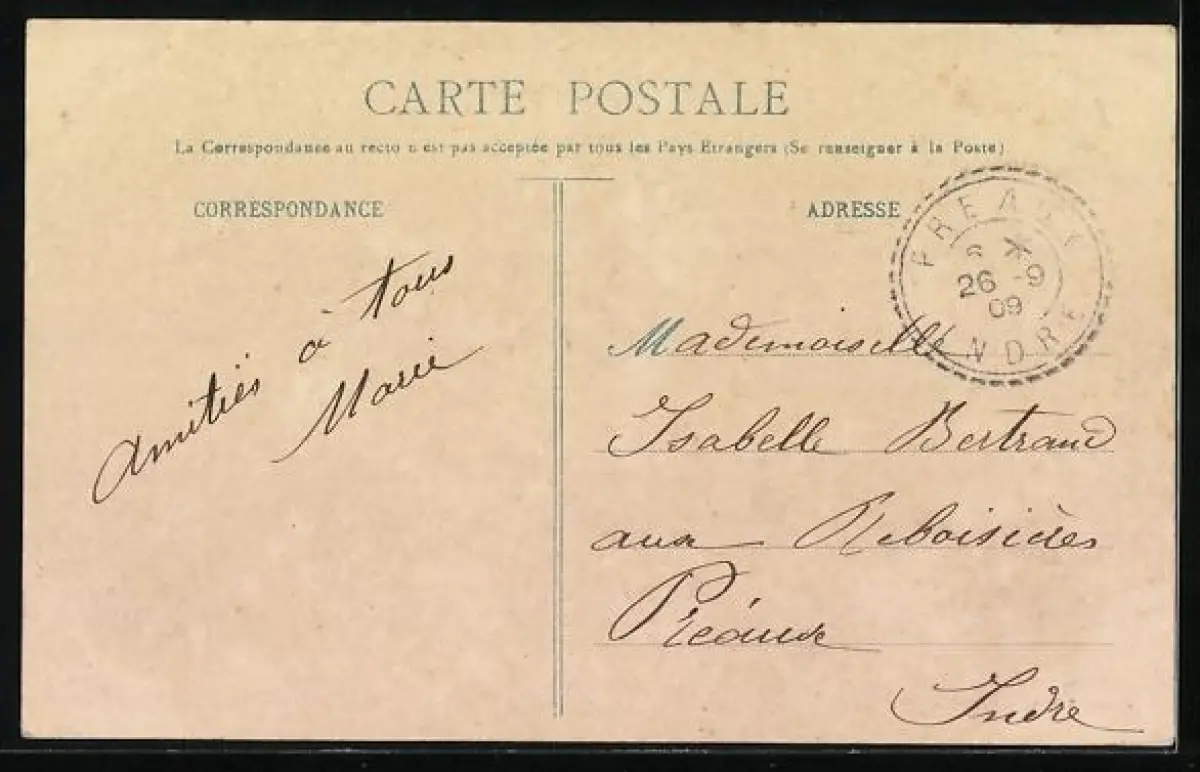 CARTE POSTALE
La Correspondance au recto n'est pas acceptée par tous les Pays Etrangers (Se renseigner à la Poste)
CORRESPONDANCE
ADRESSE
PREAUX
6 *
26 -9
09
INDRE
Amitiés à tous
Marie
Mademoiselle
Isabelle Bertrand
aux
Préaux
Indre